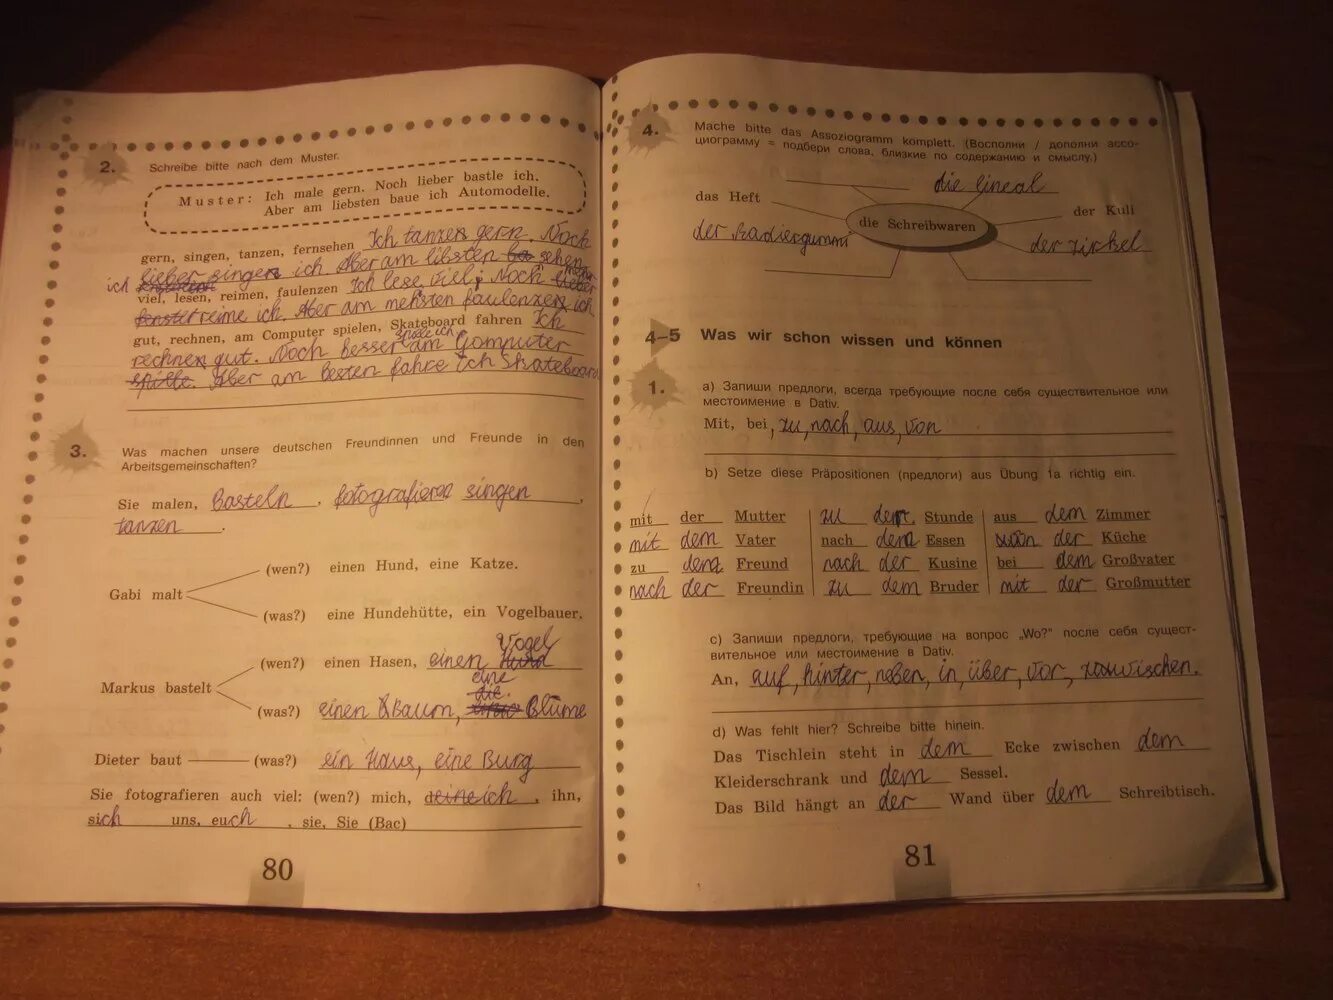 2. Schreibe bitte nach dem Muster.
Muster: Ich male gern. Noch lieber bastle ich.
Aber am liebsten baue ich Automodelle.
gern, singen, tanzen, fernsehen Ich tanzen gern. Noch
lieber singen ich. Aber am libsten sehen
ich
viel, lesen, reimen, faulenzen Ich lese viel; Noch
reime ich. Aber am mehsten faulenzen ich
gut, rechnen, am Computer spielen, Skateboard fahren Ich
spiele ich
rechnen gut. Noch besser am Computer
Aber am besten fahre ich Skateboard
3. Was machen unsere deutschen Freundinnen und Freunde in den
Arbeitsgemeinschaften?
Sie malen, Basteln, fotografieren singen,
tanzen.
(wen?) einen Hund, eine Katze.
Gabi malt
(was?) eine Hundehütte, ein Vogelbauer.
Vogel
(wen?) einen Hasen, einen
Markus bastelt
eine
die
(was?) einen Baum, Blume
Dieter baut (was?) ein Haus, eine Burg
Sie fotografieren auch viel: (wen?) mich, ich, ihn,
sich uns, euch, sie, Sie (Вас)
80
4. Mache bitte das Assoziogramm komplett. (Восполни / дополни ассо-
циограмму = подбери слова, близкие по содержанию и смыслу.)
die lineal
das Heft
der Kuli
die Schreibwaren
der Radiergummi
der Zirkel
4–5 Was wir schon wissen und können
1. a) Запиши предлоги, всегда требующие после себя существительное или
местоимение в Dativ.
Mit, bei, zu, nach, aus, von
b) Setze diese Präpositionen (предлоги) aus Übung 1a richtig ein.
mit der Mutter zu der Stunde aus dem Zimmer
mit dem Vater nach dem Essen von der Küche
zu dem Freund nach der Kusine bei dem Großvater
nach der Freundin zu dem Bruder mit der Großmutter
c) Запиши предлоги, требующие на вопрос „Wo?" после себя сущест-
вительное или местоимение в Dativ.
An, auf, hinter, neben, in, über, vor, zwischen.
d) Was fehlt hier? Schreibe bitte hinein.
Das Tischlein steht in dem Ecke zwischen dem
Kleiderschrank und dem Sessel.
Das Bild hängt an der Wand über dem Schreibtisch.
81